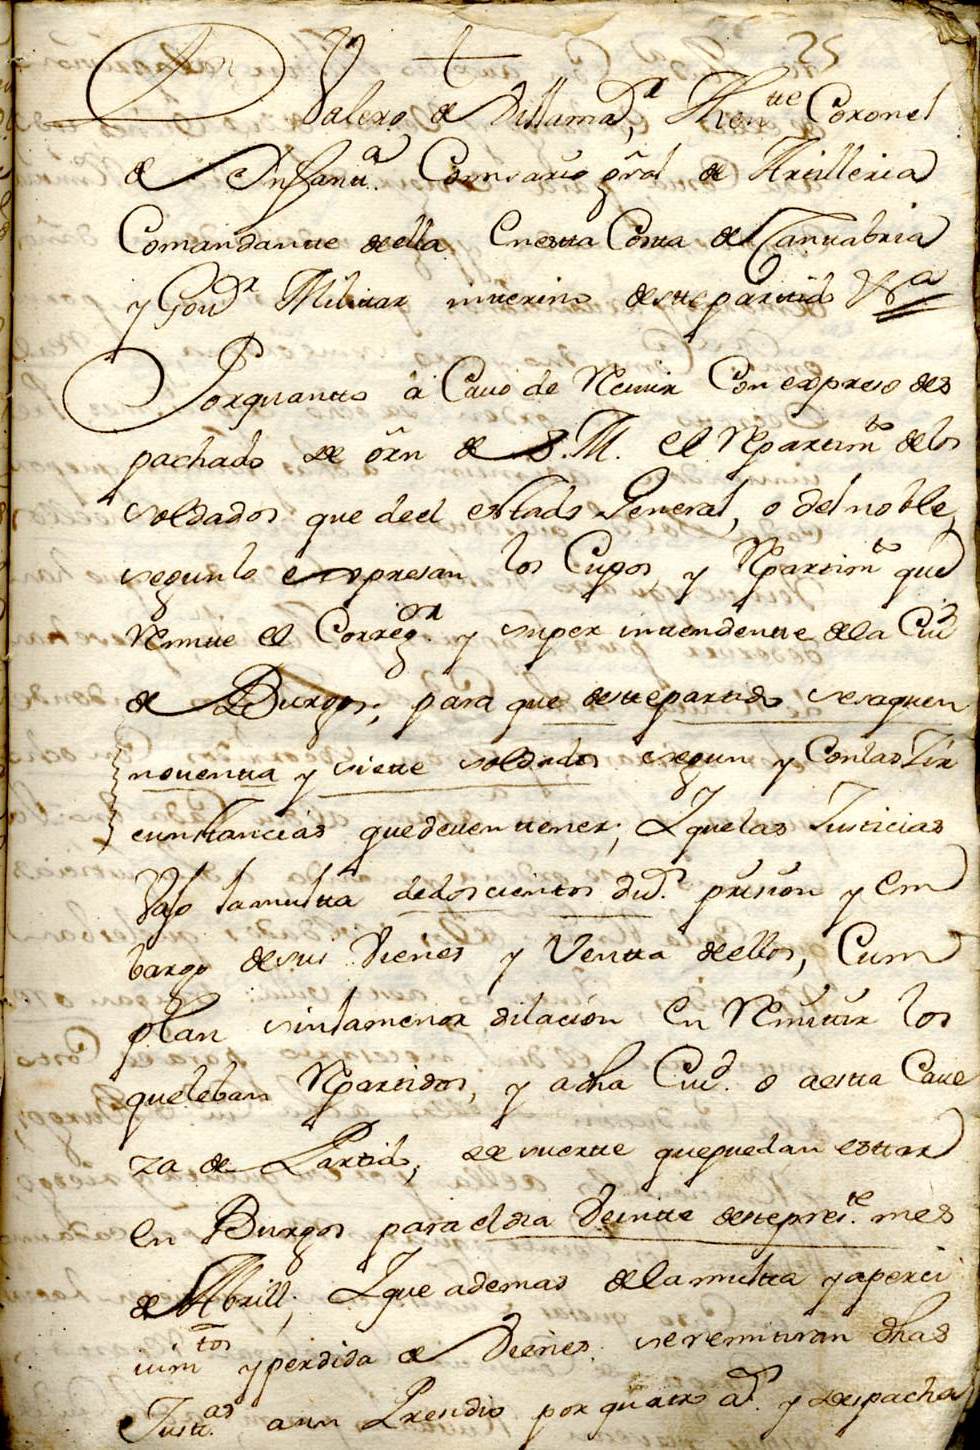 25
Dn Valero de Villamadr, Thente Coronel
de Infanta. Comisario gral de Artilleria
Comandante della En esta Costa de Cantabria
y Govr Militar interino deste partido &a
Porquanto à Cavo de Recivir Con expreso des
pachado de orn de S. M. el Repartimto de los
soldados que de el estado General, o del noble,
segun lo expresan los Cupos, y Repartimto que
Remite el Corregor. y super intendente de la Ciud
de Burgos; para que deste partido se saquen
noventa y siette soldados segun y Con las Zir
cunstancias que deven tener; Y que las Justicias
Vajo la multa de doscientos dud. prision y Em
bargo de sus Vienes y Venta de ellos, Cum
plan sin la menor dilacion En Remitir los
que leban Repartidos, y a dha Ciud. o a esta Cave
za de Partido, de suerte que puedan estar
En Burgos para el dia Veinte deste preste. mes
de Abrill; Y que ademas de la multa y aperci
vimtos y perdida de Vienes se remitiran dhas
Justas. a un Presidio por quatro as. y despacha